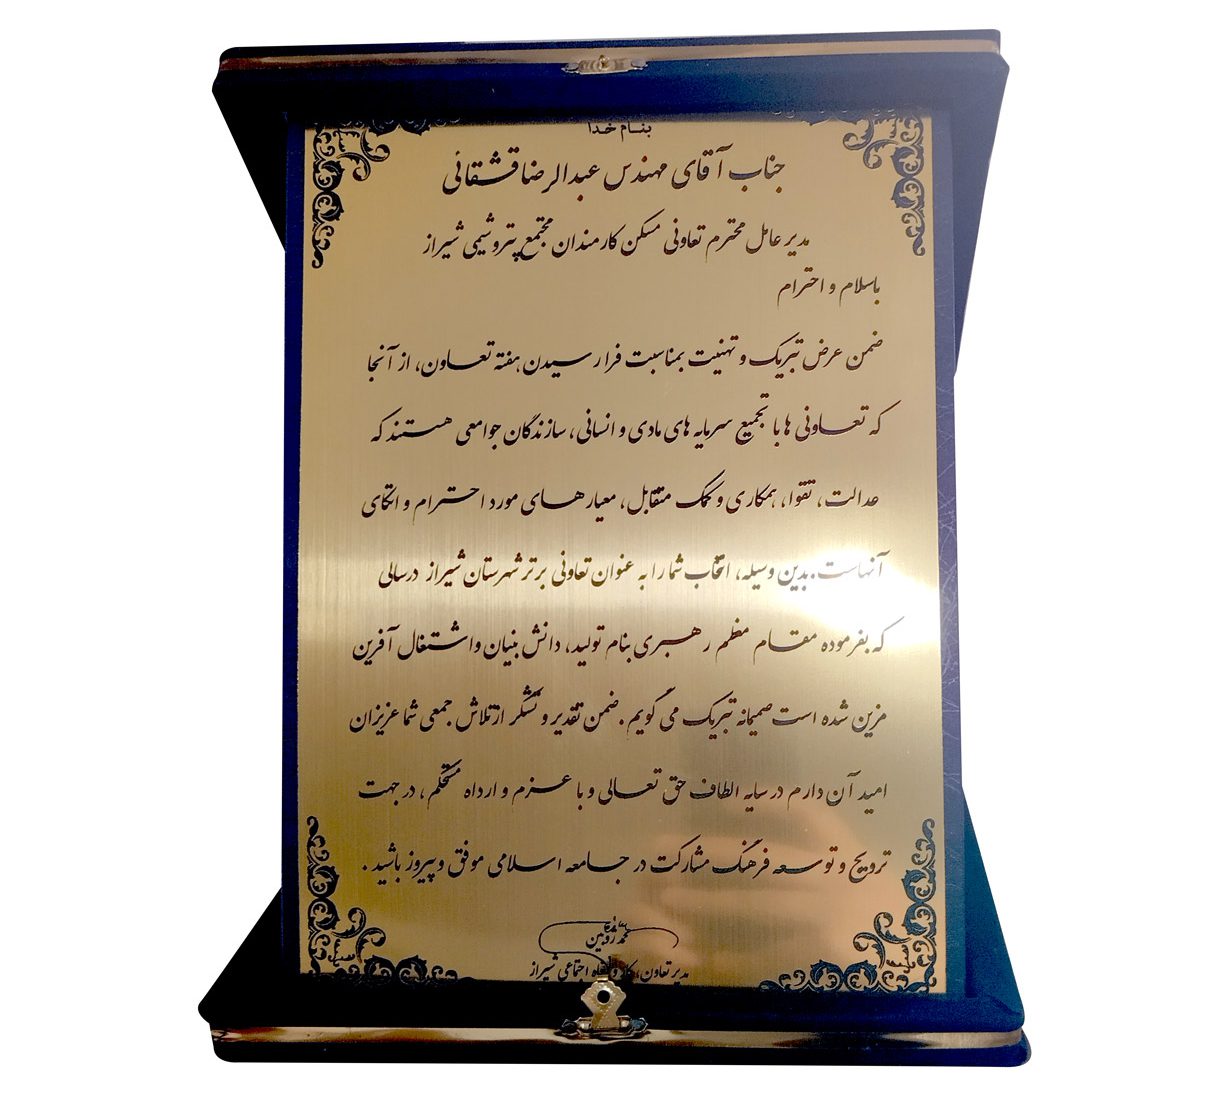 بنام خدا
جناب آقای مهندس عبدالرضا قشقائی
مدیر عامل محترم تعاونی مسکن کارمندان مجتمع پتروشیمی شیراز
باسلام و احترام
ضمن عرض تبریک و تهنیت بمناسبت فرا رسیدن هفته تعاون، از آنجا
که تعاونی ها با تجمیع سرمایه های مادی و انسانی، سازندگان جوامعی هستند که
عدالت، تقوا، همکاری و کمک متقابل، معیارهای مورد احترام و اتکای
آنهاست. بدین وسیله، انتخاب شما را به عنوان تعاونی برتر شهرستان شیراز در سالی
که بفرموده مقام معظم رهبری بنام تولید، دانش بنیان و اشتغال آفرین
مزین شده است صمیمانه تبریک می گویم. ضمن تقدیر و تشکر از تلاش جمعی شما عزیزان
امید آن دارم در سایه الطاف حق تعالی و با عزم و ارداه مستحکم، در جهت
ترویج و توسعه فرهنگ مشارکت در جامعه اسلامی موفق و پیروز باشید.
محمد ژوبین
مدیر تعاون، کار و رفاه اجتماعی شیراز